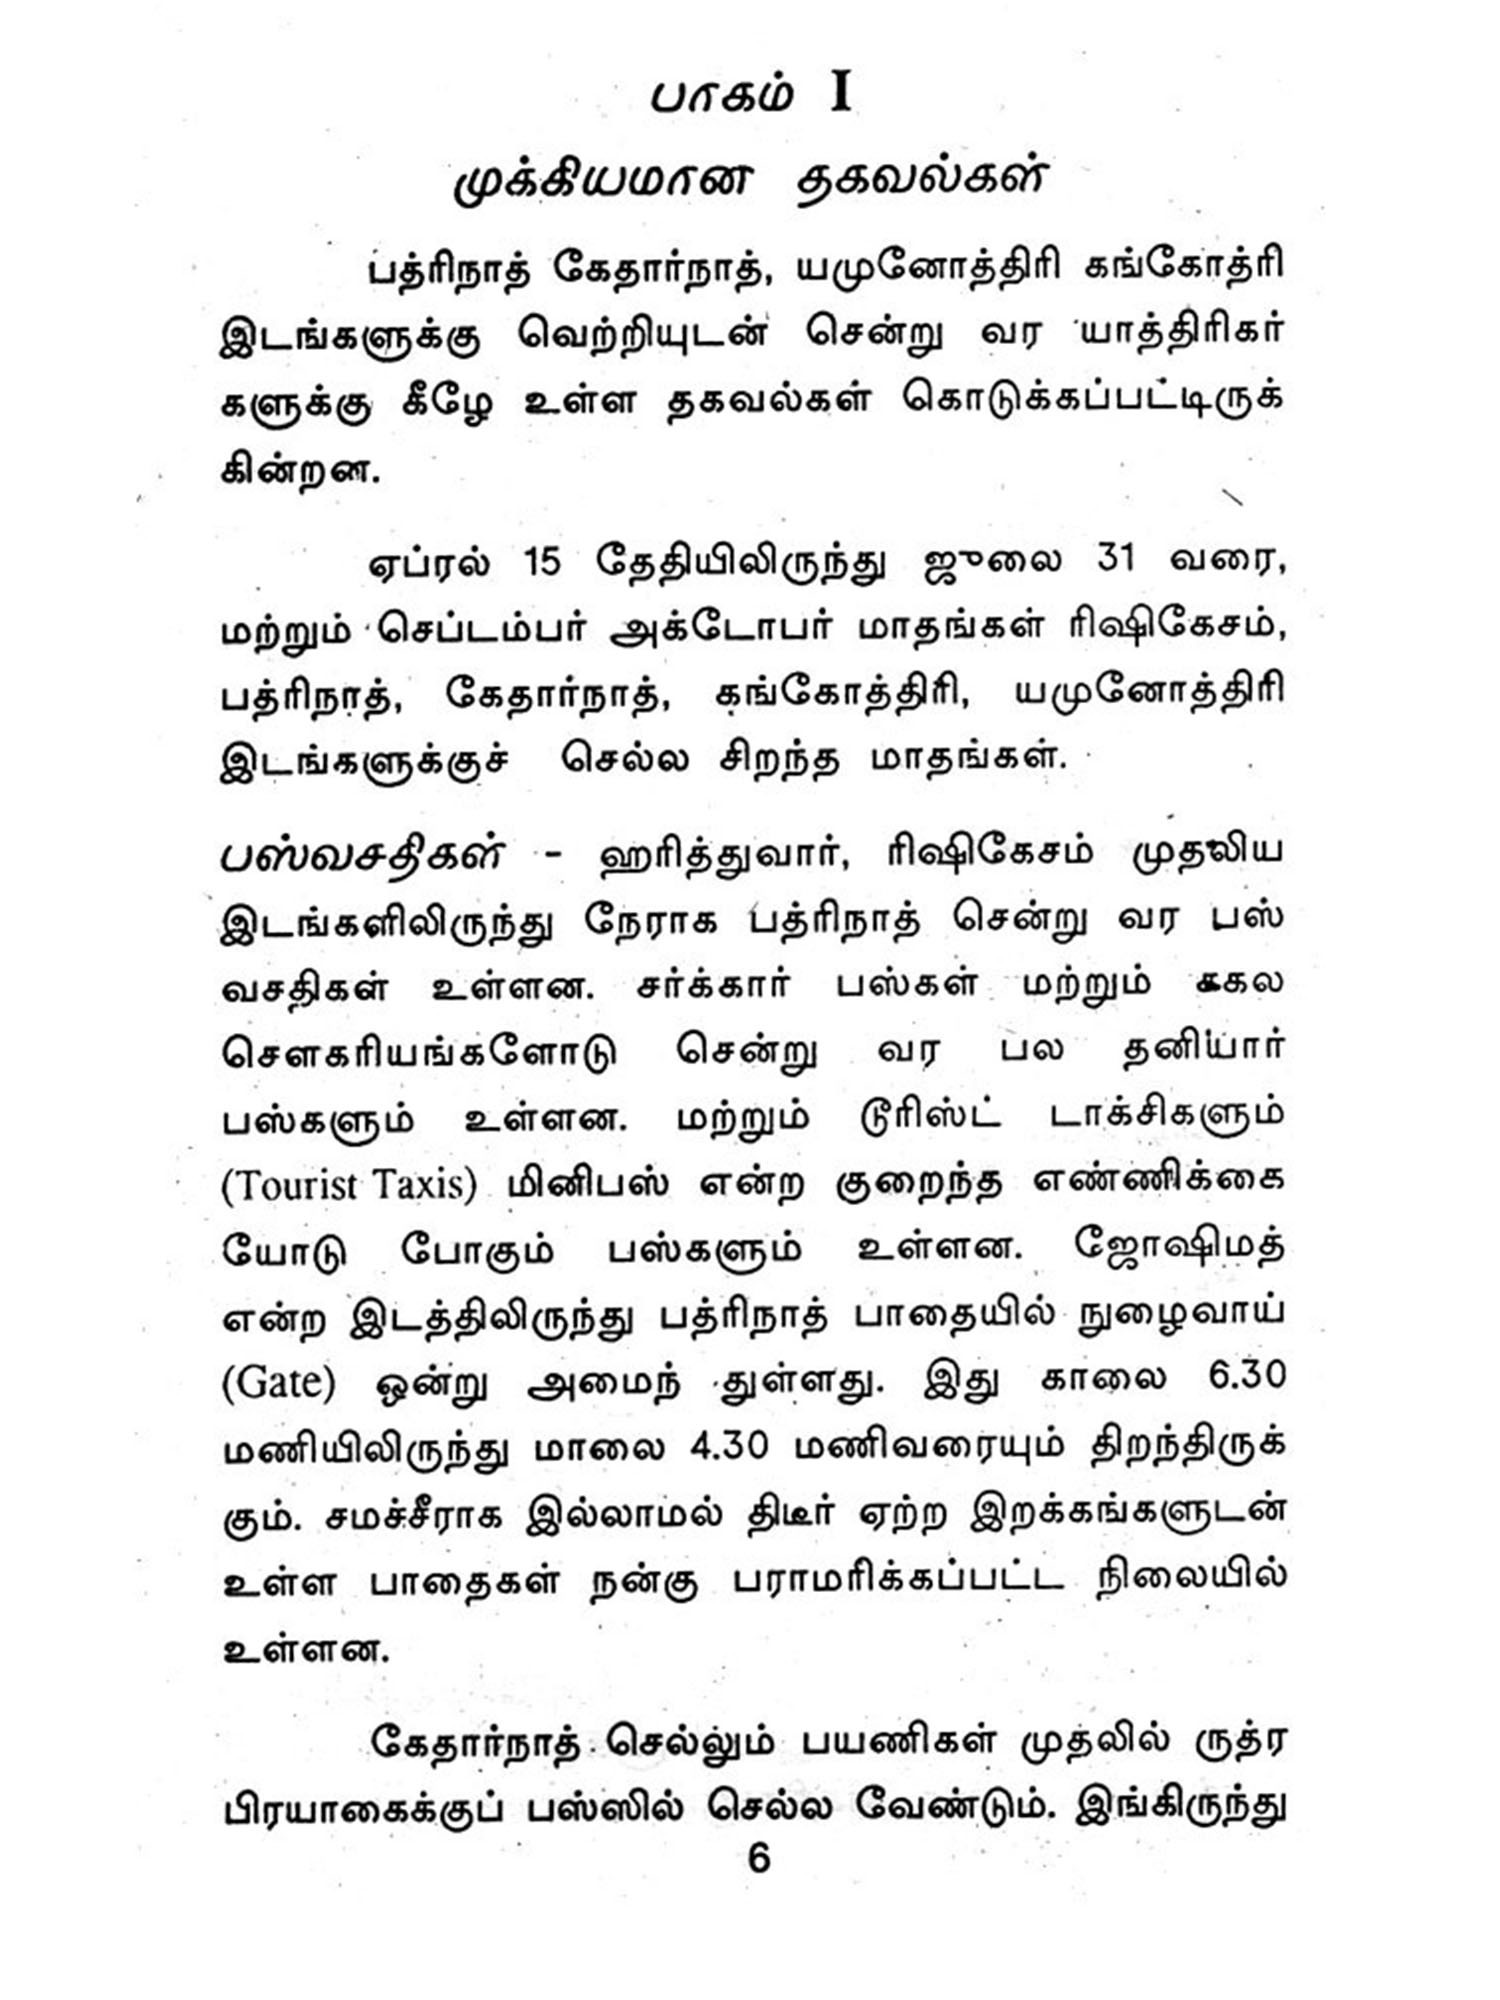 பாகம் I
முக்கியமான தகவல்கள்
பத்ரிநாத் கேதார்நாத், யமுனோத்திரி கங்கோத்ரி
இடங்களுக்கு வெற்றியுடன் சென்று வர யாத்திரிகர்
களுக்கு கீழே உள்ள தகவல்கள் கொடுக்கப்பட்டிருக்
கின்றன.
ஏப்ரல் 15 தேதியிலிருந்து ஜுலை 31 வரை,
மற்றும் செப்டம்பர் அக்டோபர் மாதங்கள் ரிஷிகேசம்,
பத்ரிநாத், கேதார்நாத், கங்கோத்திரி, யமுனோத்திரி
இடங்களுக்குச் செல்ல சிறந்த மாதங்கள்.
பஸ்வசதிகள் - ஹரித்துவார், ரிஷிகேசம் முதலிய
இடங்களிலிருந்து நேராக பத்ரிநாத் சென்று வர பஸ்
வசதிகள் உள்ளன. சர்க்கார் பஸ்கள் மற்றும் சகல
சௌகரியங்களோடு சென்று வர பல தனியார்
பஸ்களும் உள்ளன. மற்றும் டூரிஸ்ட் டாக்சிகளும்
(Tourist Taxis) மினிபஸ் என்ற குறைந்த எண்ணிக்கை
யோடு போகும் பஸ்களும் உள்ளன. ஜோஷிமத்
என்ற இடத்திலிருந்து பத்ரிநாத் பாதையில் நுழைவாய்
(Gate) ஒன்று அமைந் துள்ளது. இது காலை 6.30
மணியிலிருந்து மாலை 4.30 மணிவரையும் திறந்திருக்
கும். சமச்சீராக இல்லாமல் திடீர் ஏற்ற இறக்கங்களுடன்
உள்ள பாதைகள் நன்கு பராமரிக்கப்பட்ட நிலையில்
உள்ளன.
கேதார்நாத் செல்லும் பயணிகள் முதலில் ருத்ர
பிரயாகைக்குப் பஸ்ஸில் செல்ல வேண்டும். இங்கிருந்து
6